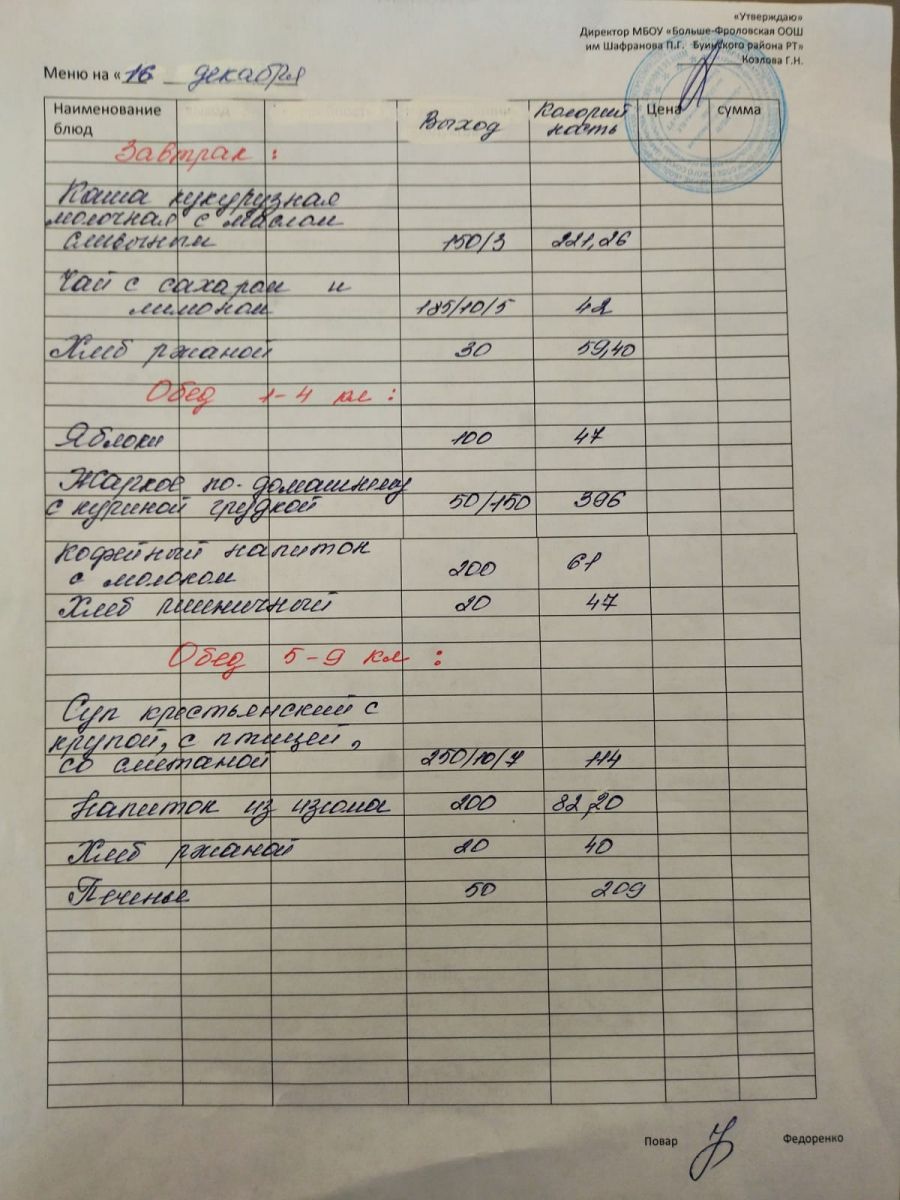 «Утверждаю»
Директор МБОУ «Больше-Фроловская ООШ
им Шафранова П.Г. Буинского района РТ»
Козлова Г.Н.
Меню на « 16 декабря
Наименование блюд Выход Калорий ность Цена сумма
Завтрак :
Каша кукурузная
молочная с маслом
сливочным 150/3 221,26
Чай с сахаром и
лимоном 185/10/5 42
Хлеб ржаной 30 59,40
Обед 1-4 кл :
Яблоки 100 47
Жаркое по-домашнему
с куриной грудкой 50/150 396
Кофейный напиток
с молоком 200 61
Хлеб пшеничный 20 47
Обед 5-9 кл :
Суп крестьянский с
крупой, с птицей,
со сметаной 250/10/7 114
Напиток из изюма 200 82,20
Хлеб ржаной 20 40
Печенье 50 209
Повар Федоренко